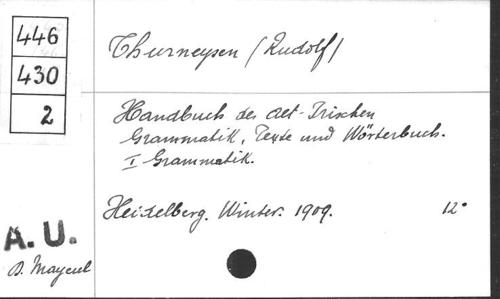 446
430
2
Thurneysen (Rudolf)
Handbuch des Alt-Irischen
Grammatik, Texte und Wörterbuch.
I Grammatik.
Heidelberg. Winter. 1909. 12°
A. U.